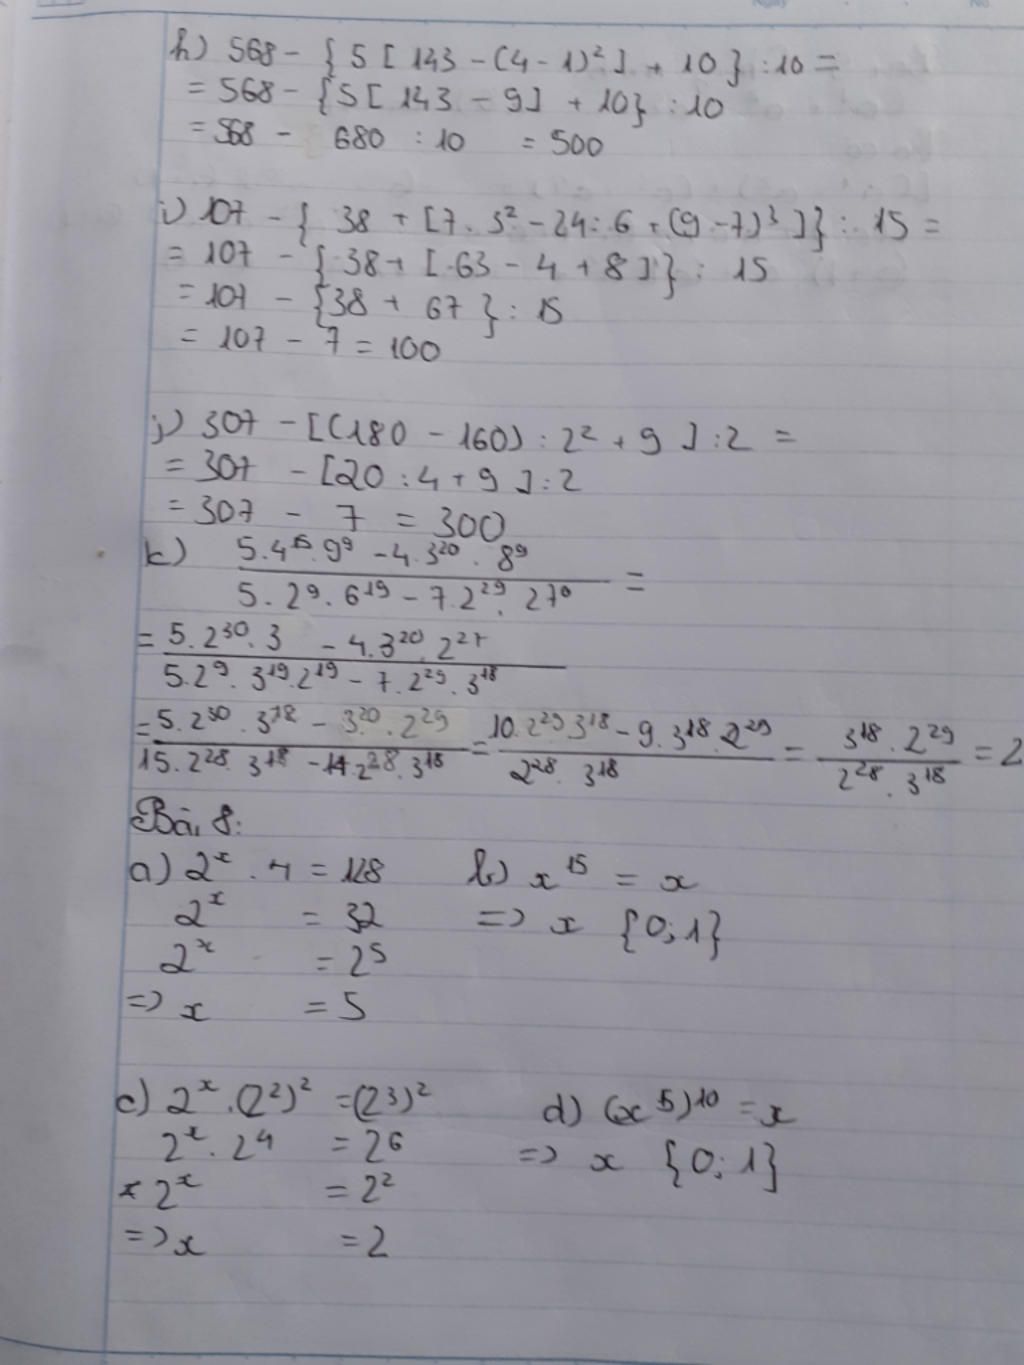 h) 568 - { 5 [ 143 - (4 - 1)² ] + 10 } : 10 =
= 568 - {5 [ 143 - 9 ] + 10} : 10
= 568 - 680 : 10 = 500
i) 107 - { 38 + [7 . 3² - 24 : 6 + (9 - 7)³ ]} : 15 =
= 107 - { 38 + [ 63 - 4 + 8 ] } : 15
= 107 - {38 + 67 } : 15
= 107 - 7 = 100
j) 307 - [(180 - 160) : 2² + 9 ] : 2 =
= 307 - [20 : 4 + 9 ] : 2
= 307 - 7 = 300
k) 5.4¹⁵.9⁹ - 4.3²⁰.8⁹
5.2⁹.6¹⁹ - 7.2²⁹.27⁶ =
= 5.2³⁰.3 - 4.3²⁰.2²⁷
5.2⁹.3¹⁹.2¹⁹ - 7.2²⁹.3¹⁸
= 5.2³⁰.3¹⁸ - 3²⁰.2²⁹ = 10.2²⁹.3¹⁸ - 9.3¹⁸.2²⁹ = 3¹⁸.2²⁹ = 2
15.2²⁸.3¹⁸ - 14.2²⁸.3¹⁸ 2²⁸.3¹⁸ 2²⁸.3¹⁸
Bài 8:
a) 2ˣ . 4 = 128 b) x¹⁵ = x
2ˣ = 32 => x {0; 1}
2ˣ = 2⁵
=> x = 5
c) 2ˣ.(2²)² = (2³)² d) (x⁵)¹⁰ = x
2ˣ.2⁴ = 2⁶ => x {0; 1}
2ˣ = 2²
=> x = 2